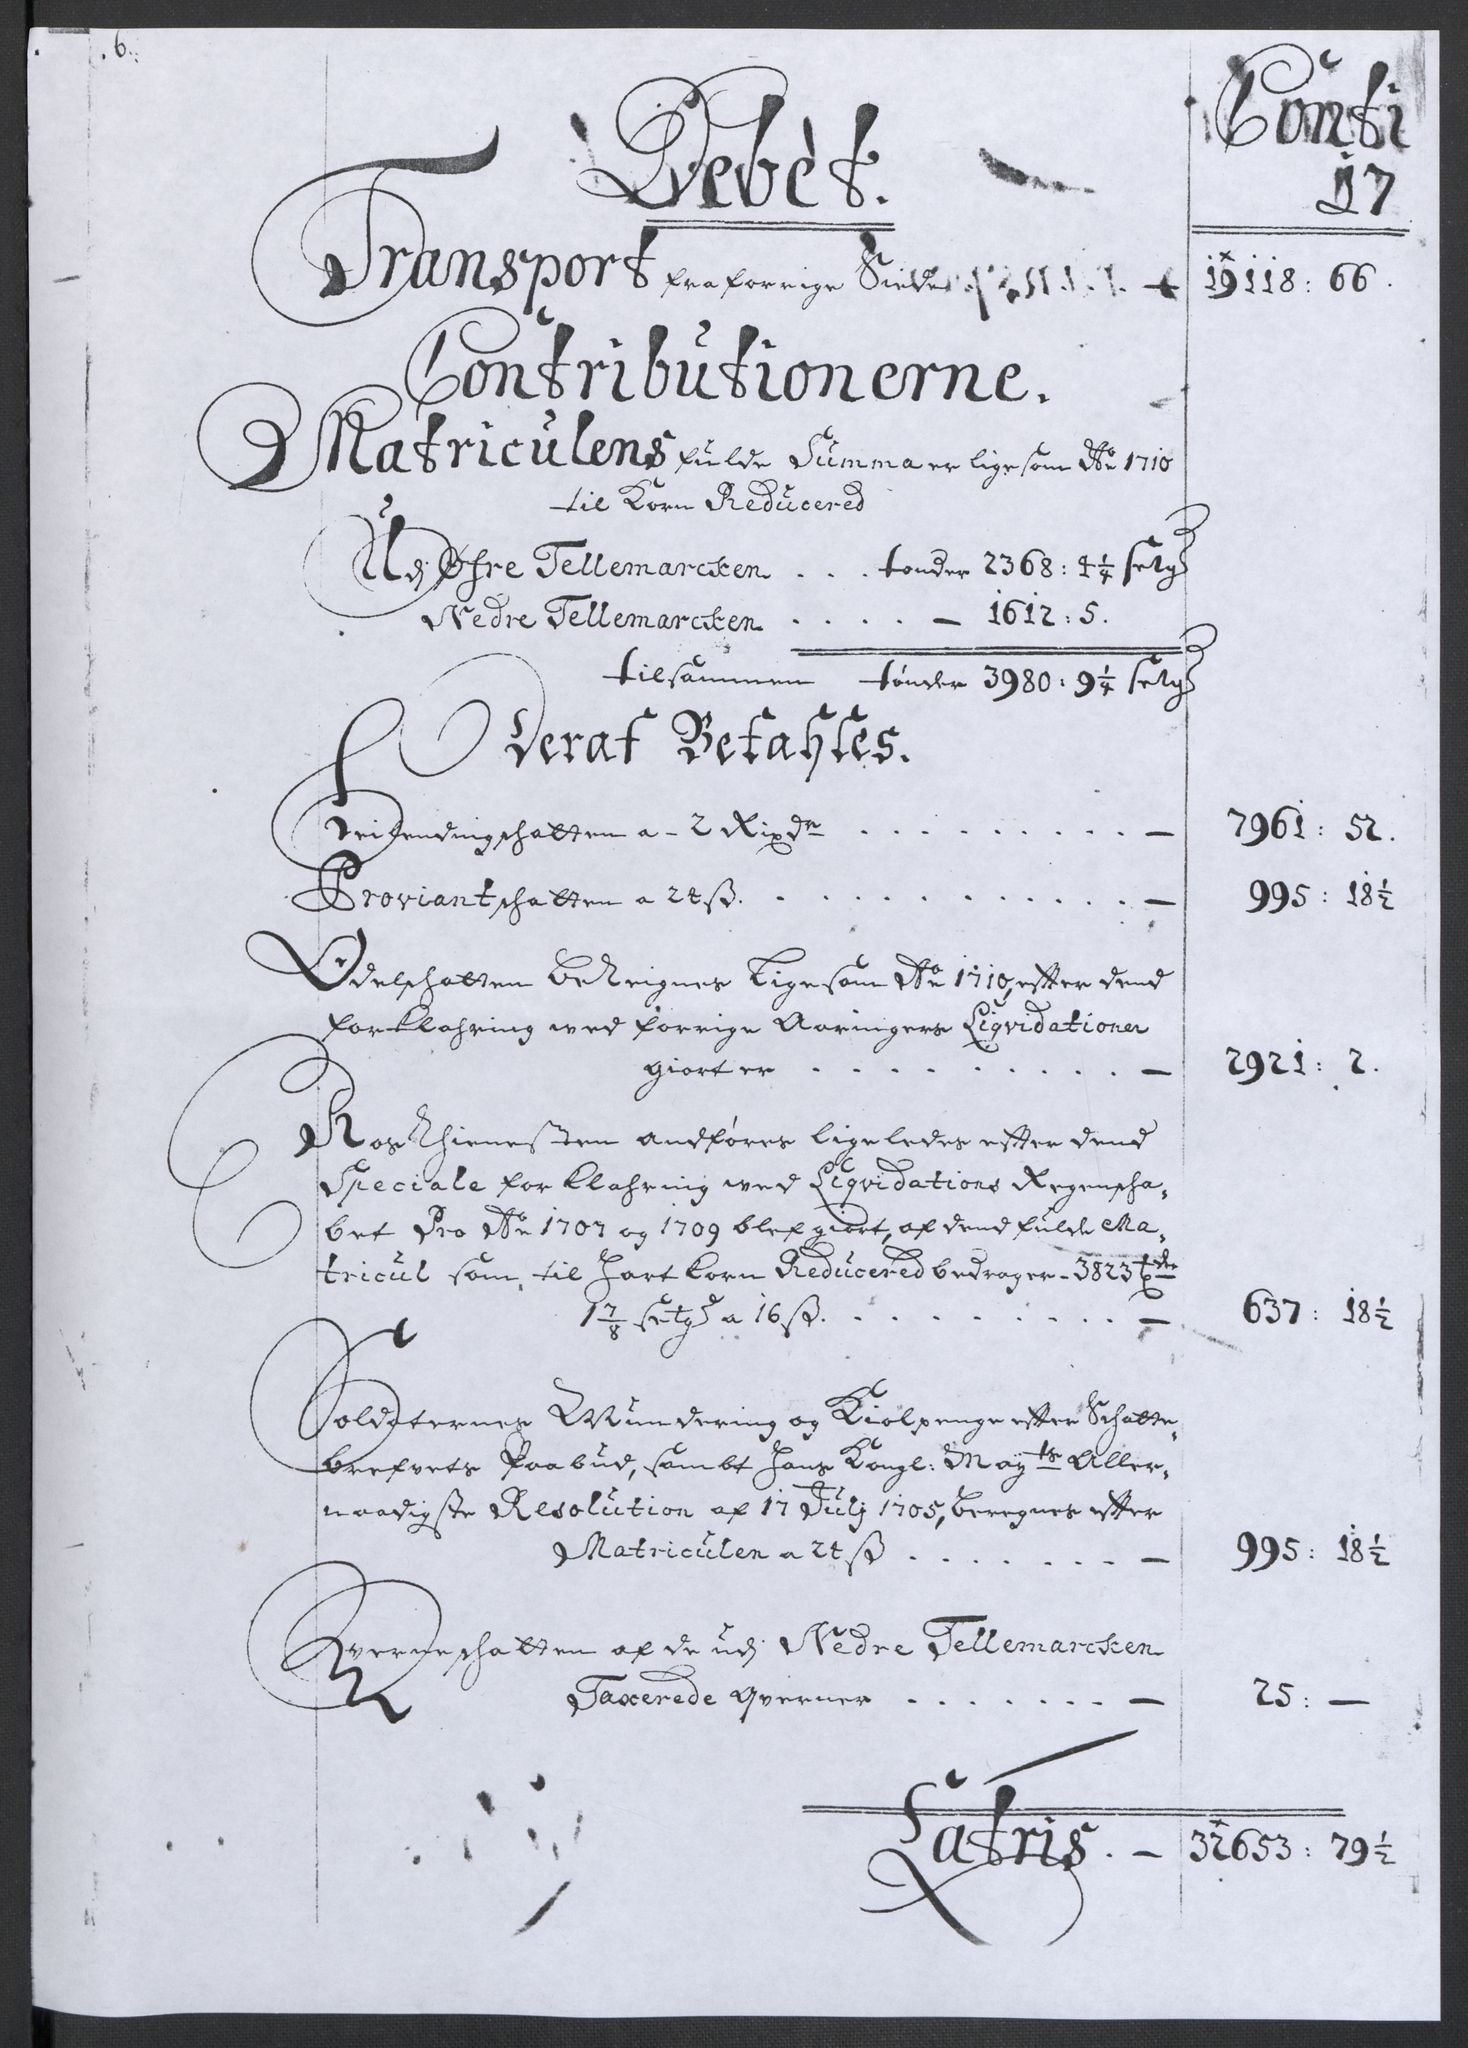 6.
Debèt.
Conti
17
Transport fra forrige Siide 19118: 66.
Contributionerne.
Matriculens fulde Summa er lige som Ao 1710
til Korn Reducered
Udj Øfre Tellemarcken . . . tønder 2368: 4 1/4 setg
Nedre Tellemarcken . . . . . — 1612: 5.
tilsammen tønder 3980: 9 1/4 setg
Deraf Betahles.
Leilendingschatten a - 2 Rixdr . . . . . . . . . — 7961: 52.
Proviantschatten a 24 ß. . . . . . . . . . . . . — 995: 18 1/2
Odelschatten beregnes lige som Ao 1710, efter dend
forklahring wed forrige Aaringers Liqvidationer
giort er . . . . . . . . . — 2921: 2.
Ros Thienesten andføres ligeledes efter dend
Speciale forklahring wed Liqvidations Regenscha,
bet Pro Ao 1707 og 1709 blef giort, af dend fulde Ma,
tricul som, til Hart Korn Reducered bedrager - 3823 tdr
1 7/8 setg a 16 ß. . . . . . . . . . — 637: 18 1/2
Soldaternes Mundering og Kiolpenge efter Schatte,
brefvets Paabud, sambt Hans Kongl: Mayts Aller,
naadigste Resolution af 17 Julj 1705, beregnes efter
Matriculen a 24 ß . . . . . . . — 995: 18 1/2
Qverneschatten af de udj Nedre Tellemarcken
Taxerede qverner . . . . . . . — 25: —
Latris. — 32653: 79 1/2